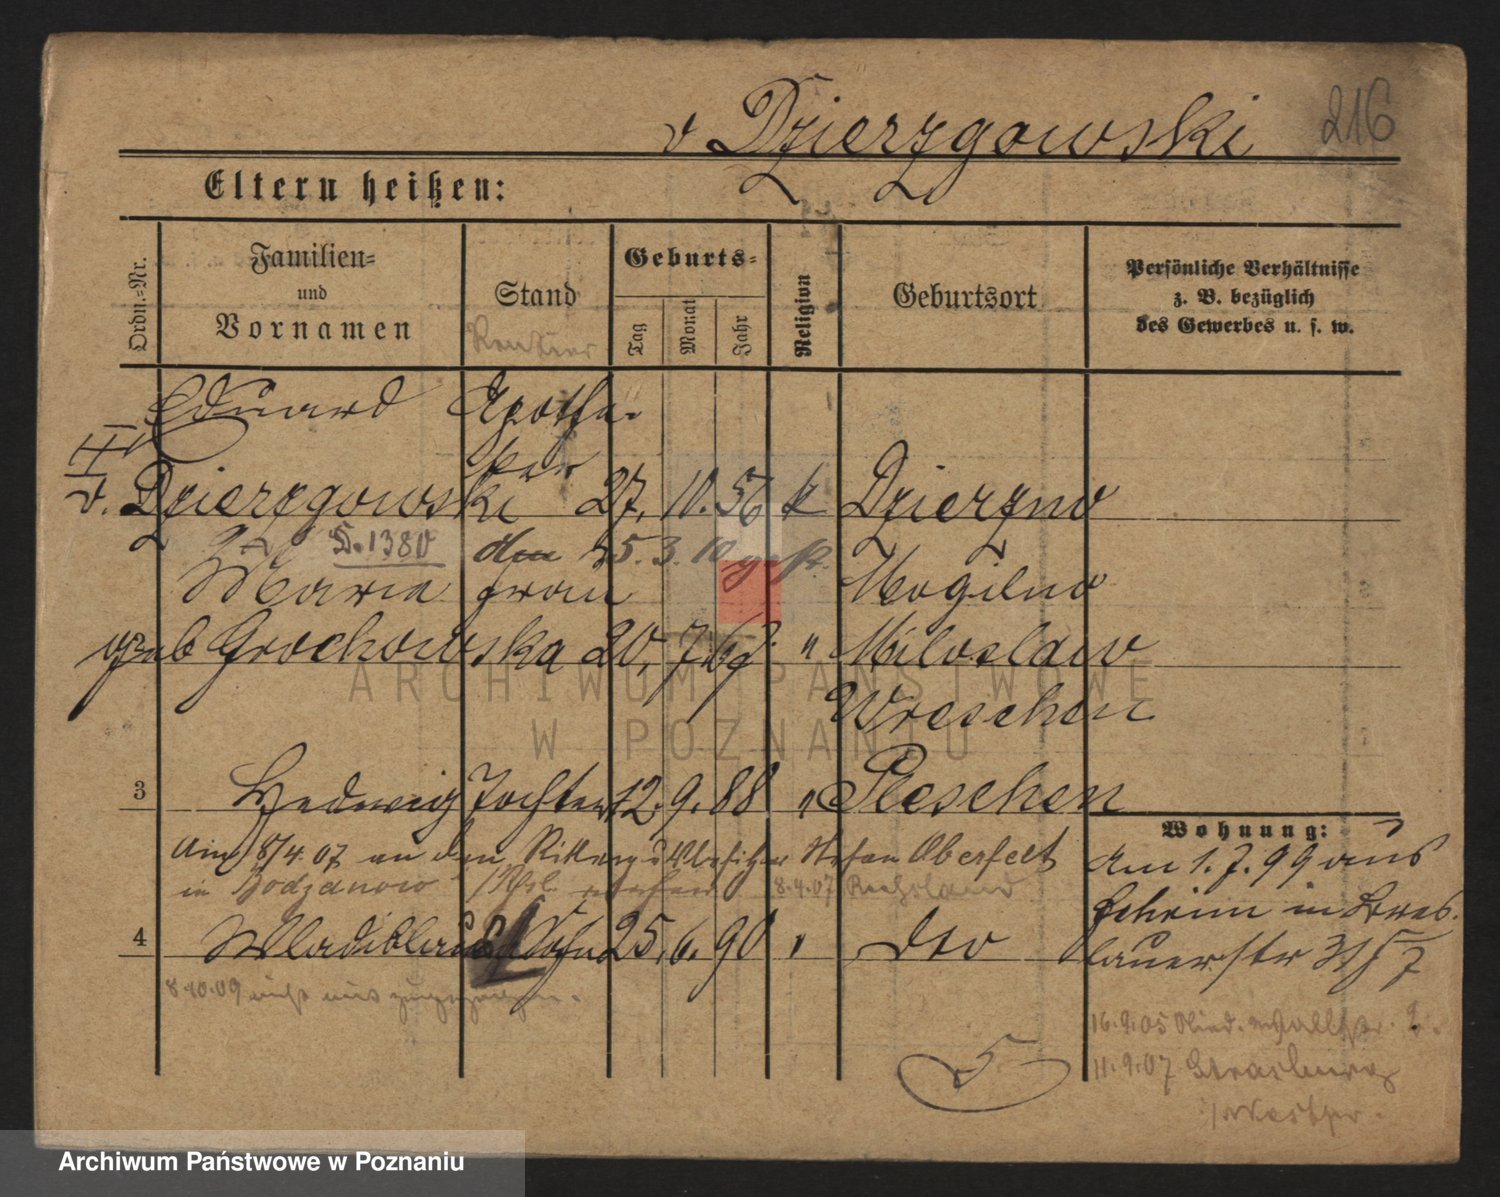 216
v Dzierzgowski
Eltern heißen:
Ordn.-Nr.
Familien-
und
Vornamen
Stand
Rentier
Geburts-
Tag
Monat
Jahr
Religion
Geburtsort
Persönliche Verhältnisse
z. B. bezüglich
des Gewerbes u. s. w.
Eduard Apothe-
ker
v. Dzierzgowski 27. 10. 56 k Dzierzno
D. 1380 25. 3. 10 gest.
Marie Frau Mogilno
geb Grochowska 20. 7. " Miloslaw
Wreschen
3 Hedwig Tochter 12. 9. 88 " Pleschen
Wohnung:
Am 1. 7. 99 aus
8/4. 07 an den Stefan Oberfelt
in 8.4.07 Russland
4 Wladislaus Sohn 25. 6. 90 " dto
in Bres-
lauerstr
8.10.09 nicht
16.9.05
11.9.07 Strasburg
i/Westpr.
ARCHIWUM PAŃSTWOWE
W POZNANIU
Archiwum Państwowe w Poznaniu